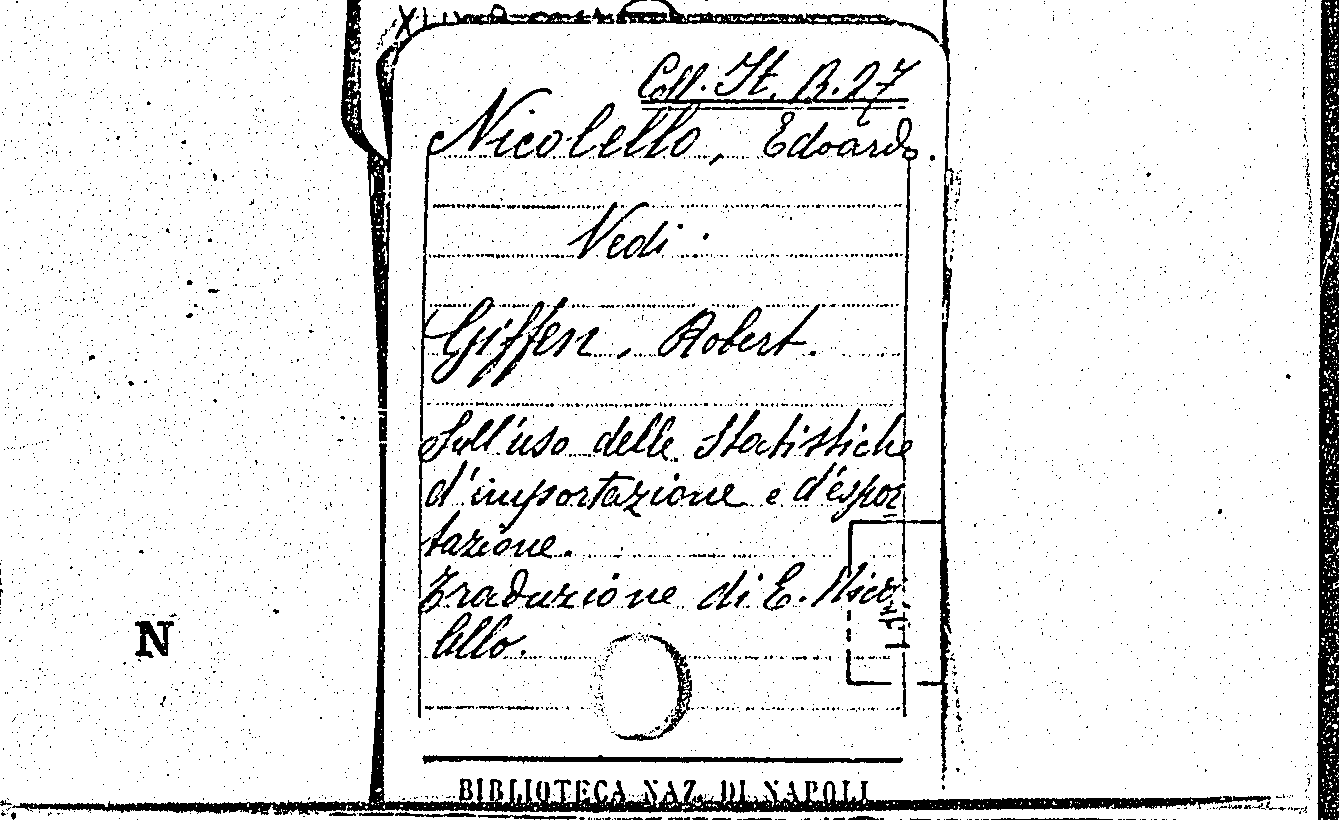 Coll. It. B. 27
Nicolello, Edoardo.
Vedi:
Giffen, Robert.
Sull'uso delle Statistiche
d'importazione e d'espor
tazione.
Traduzione di E. Nico
lello.
N
BIBLIOTECA NAZ. DI NAPOLI